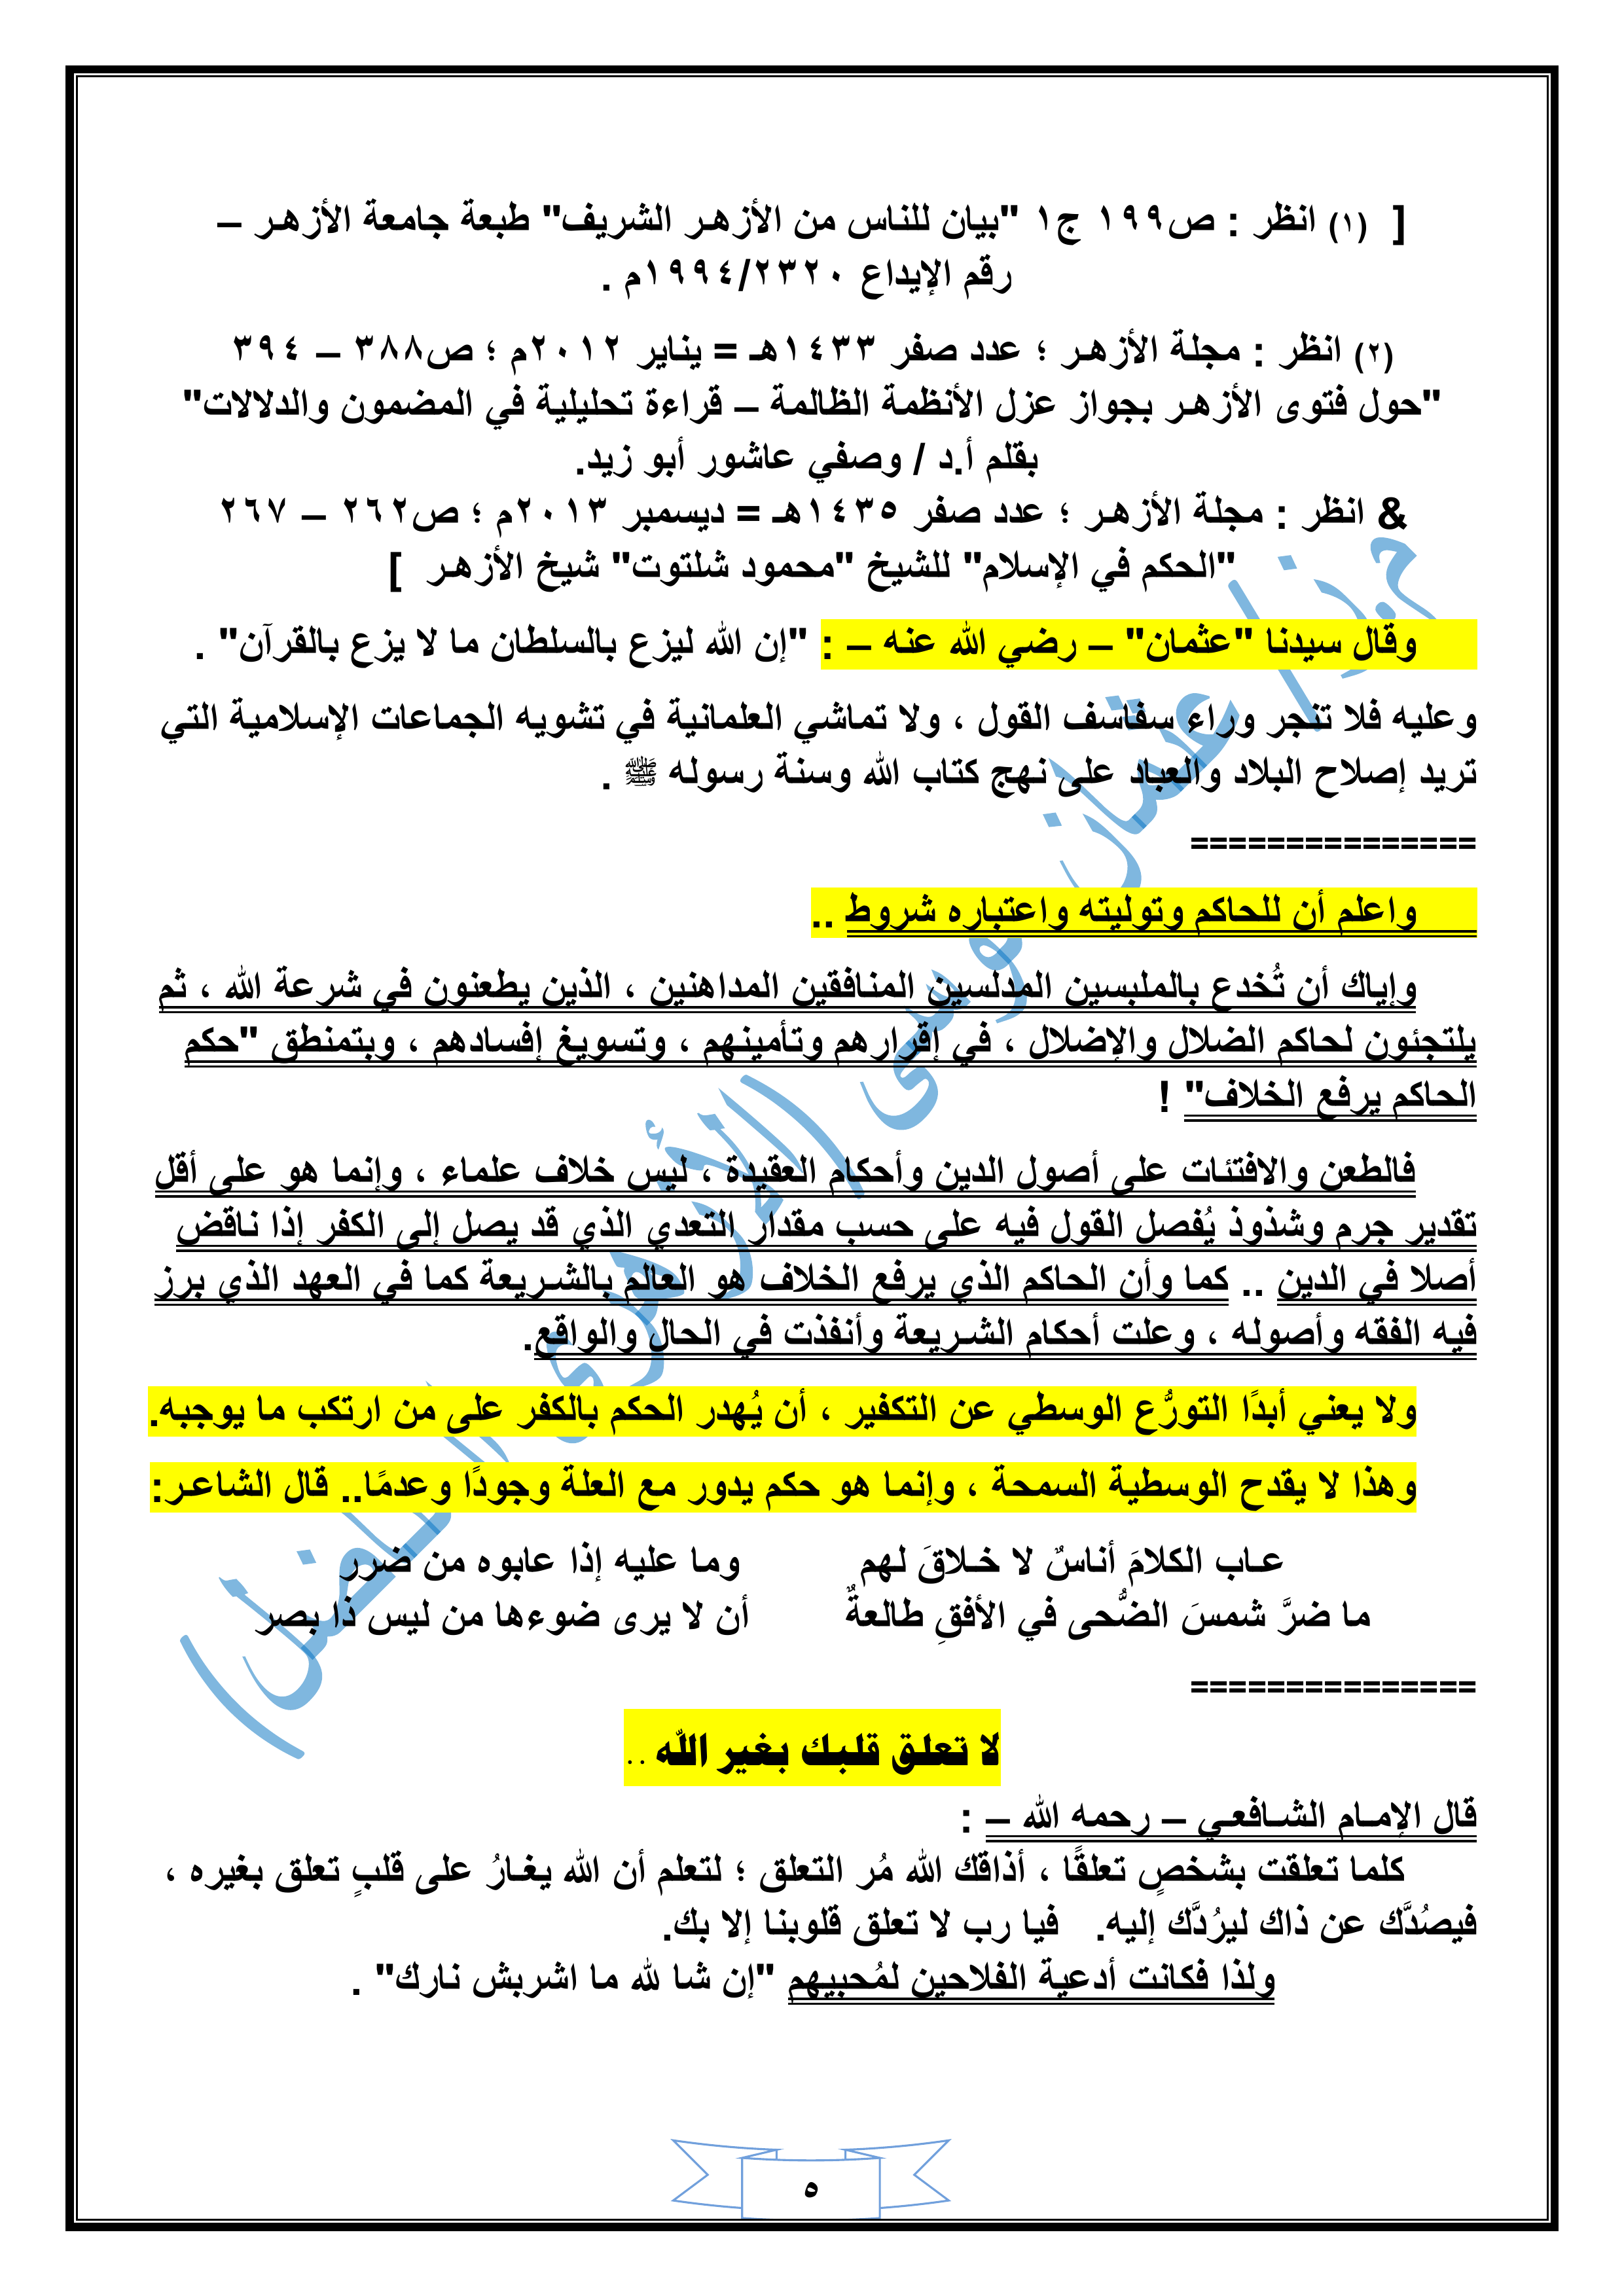 [ (١) انظر : ص١٩٩ ج١ "بيان للناس من الأزهـر الشريف" طبعة جامعة الأزهـر –
رقم الإيداع ١٩٩٤/٢٣٢٠م .
(٢) انظر : مجلة الأزهـر ؛ عدد صفر ١٤٣٣هـ = يناير ٢٠١٢م ؛ ص٣٨٨ – ٣٩٤
"حول فتوى الأزهـر بجواز عزل الأنظمة الظالمة – قراءة تحليلية في المضمون والدلالات"
بقلم أ.د / وصفي عاشور أبو زيد.
& انظر : مجلة الأزهـر ؛ عدد صفر ١٤٣٥هـ = ديسمبر ٢٠١٣م ؛ ص٢٦٢ – ٢٦٧
"الحكم في الإسلام" للشيخ "محمود شلتوت" شيخ الأزهـر ]
وقال سيدنا "عثمان" – رضي الله عنه – : "إن الله ليزع بالسلطان ما لا يزع بالقرآن" .
وعليه فلا تنجر وراء سفاسف القول ، ولا تماشي العلمانية في تشويه الجماعات الإسلامية التي
تريد إصلاح البلاد والعباد على نهج كتاب الله وسنة رسوله ﷺ .
===============
واعلم أن للحاكم وتوليته واعتباره شروط ..
وإياك أن تُخدع بالملبسين المدلسين المنافقين المداهنين ، الذين يطعنون في شرعة الله ، ثم
يلتجئون لحاكم الضلال والإضلال ، في إقرارهم وتأمينهم ، وتسويغ إفسادهم ، وبتمنطق "حكم
الحاكم يرفع الخلاف" !
فالطعن والافتئات على أصول الدين وأحكام العقيدة ، ليس خلاف علماء ، وإنما هو على أقل
تقدير جرم وشذوذ يُفصل القول فيه على حسب مقدار التعدي الذي قد يصل إلى الكفر إذا ناقض
أصلا في الدين .. كما وأن الحاكم الذي يرفع الخلاف هو العالم بالشـريعة كما في العهد الذي برز
فيه الفقه وأصوله ، وعلت أحكام الشـريعة وأنفذت في الحال والواقع.
ولا يعني أبدًا التورُّع الوسطي عن التكفير ، أن يُهدر الحكم بالكفر على من ارتكب ما يوجبه.
وهذا لا يقدح الوسطية السمحة ، وإنما هو حكم يدور مع العلة وجودًا وعدمًا.. قال الشاعـر:
عـاب الكلامَ أناسٌ لا خـلاقَ لهم وما عليه إذا عابوه من ضرر
ما ضرَّ شمسَ الضُّحى في الأفقِ طالعةٌ أن لا يرى ضوءها من ليس ذا بصر
===============
لا تعلـق قلبـك بغير الله ..
قال الإمـام الشـافعـي – رحمه الله – :
كلما تعلقت بشخصٍ تعلقًا ، أذاقك الله مُر التعلق ؛ لتعلم أن الله يغـارُ على قلبٍ تعلق بغيره ،
فيصُدَّك عن ذاك ليرُدَّك إليه. فيا رب لا تعلق قلوبنا إلا بك.
ولذا فكانت أدعية الفلاحين لمُحبيهم "إن شا لله ما اشربش نارك" .
٥